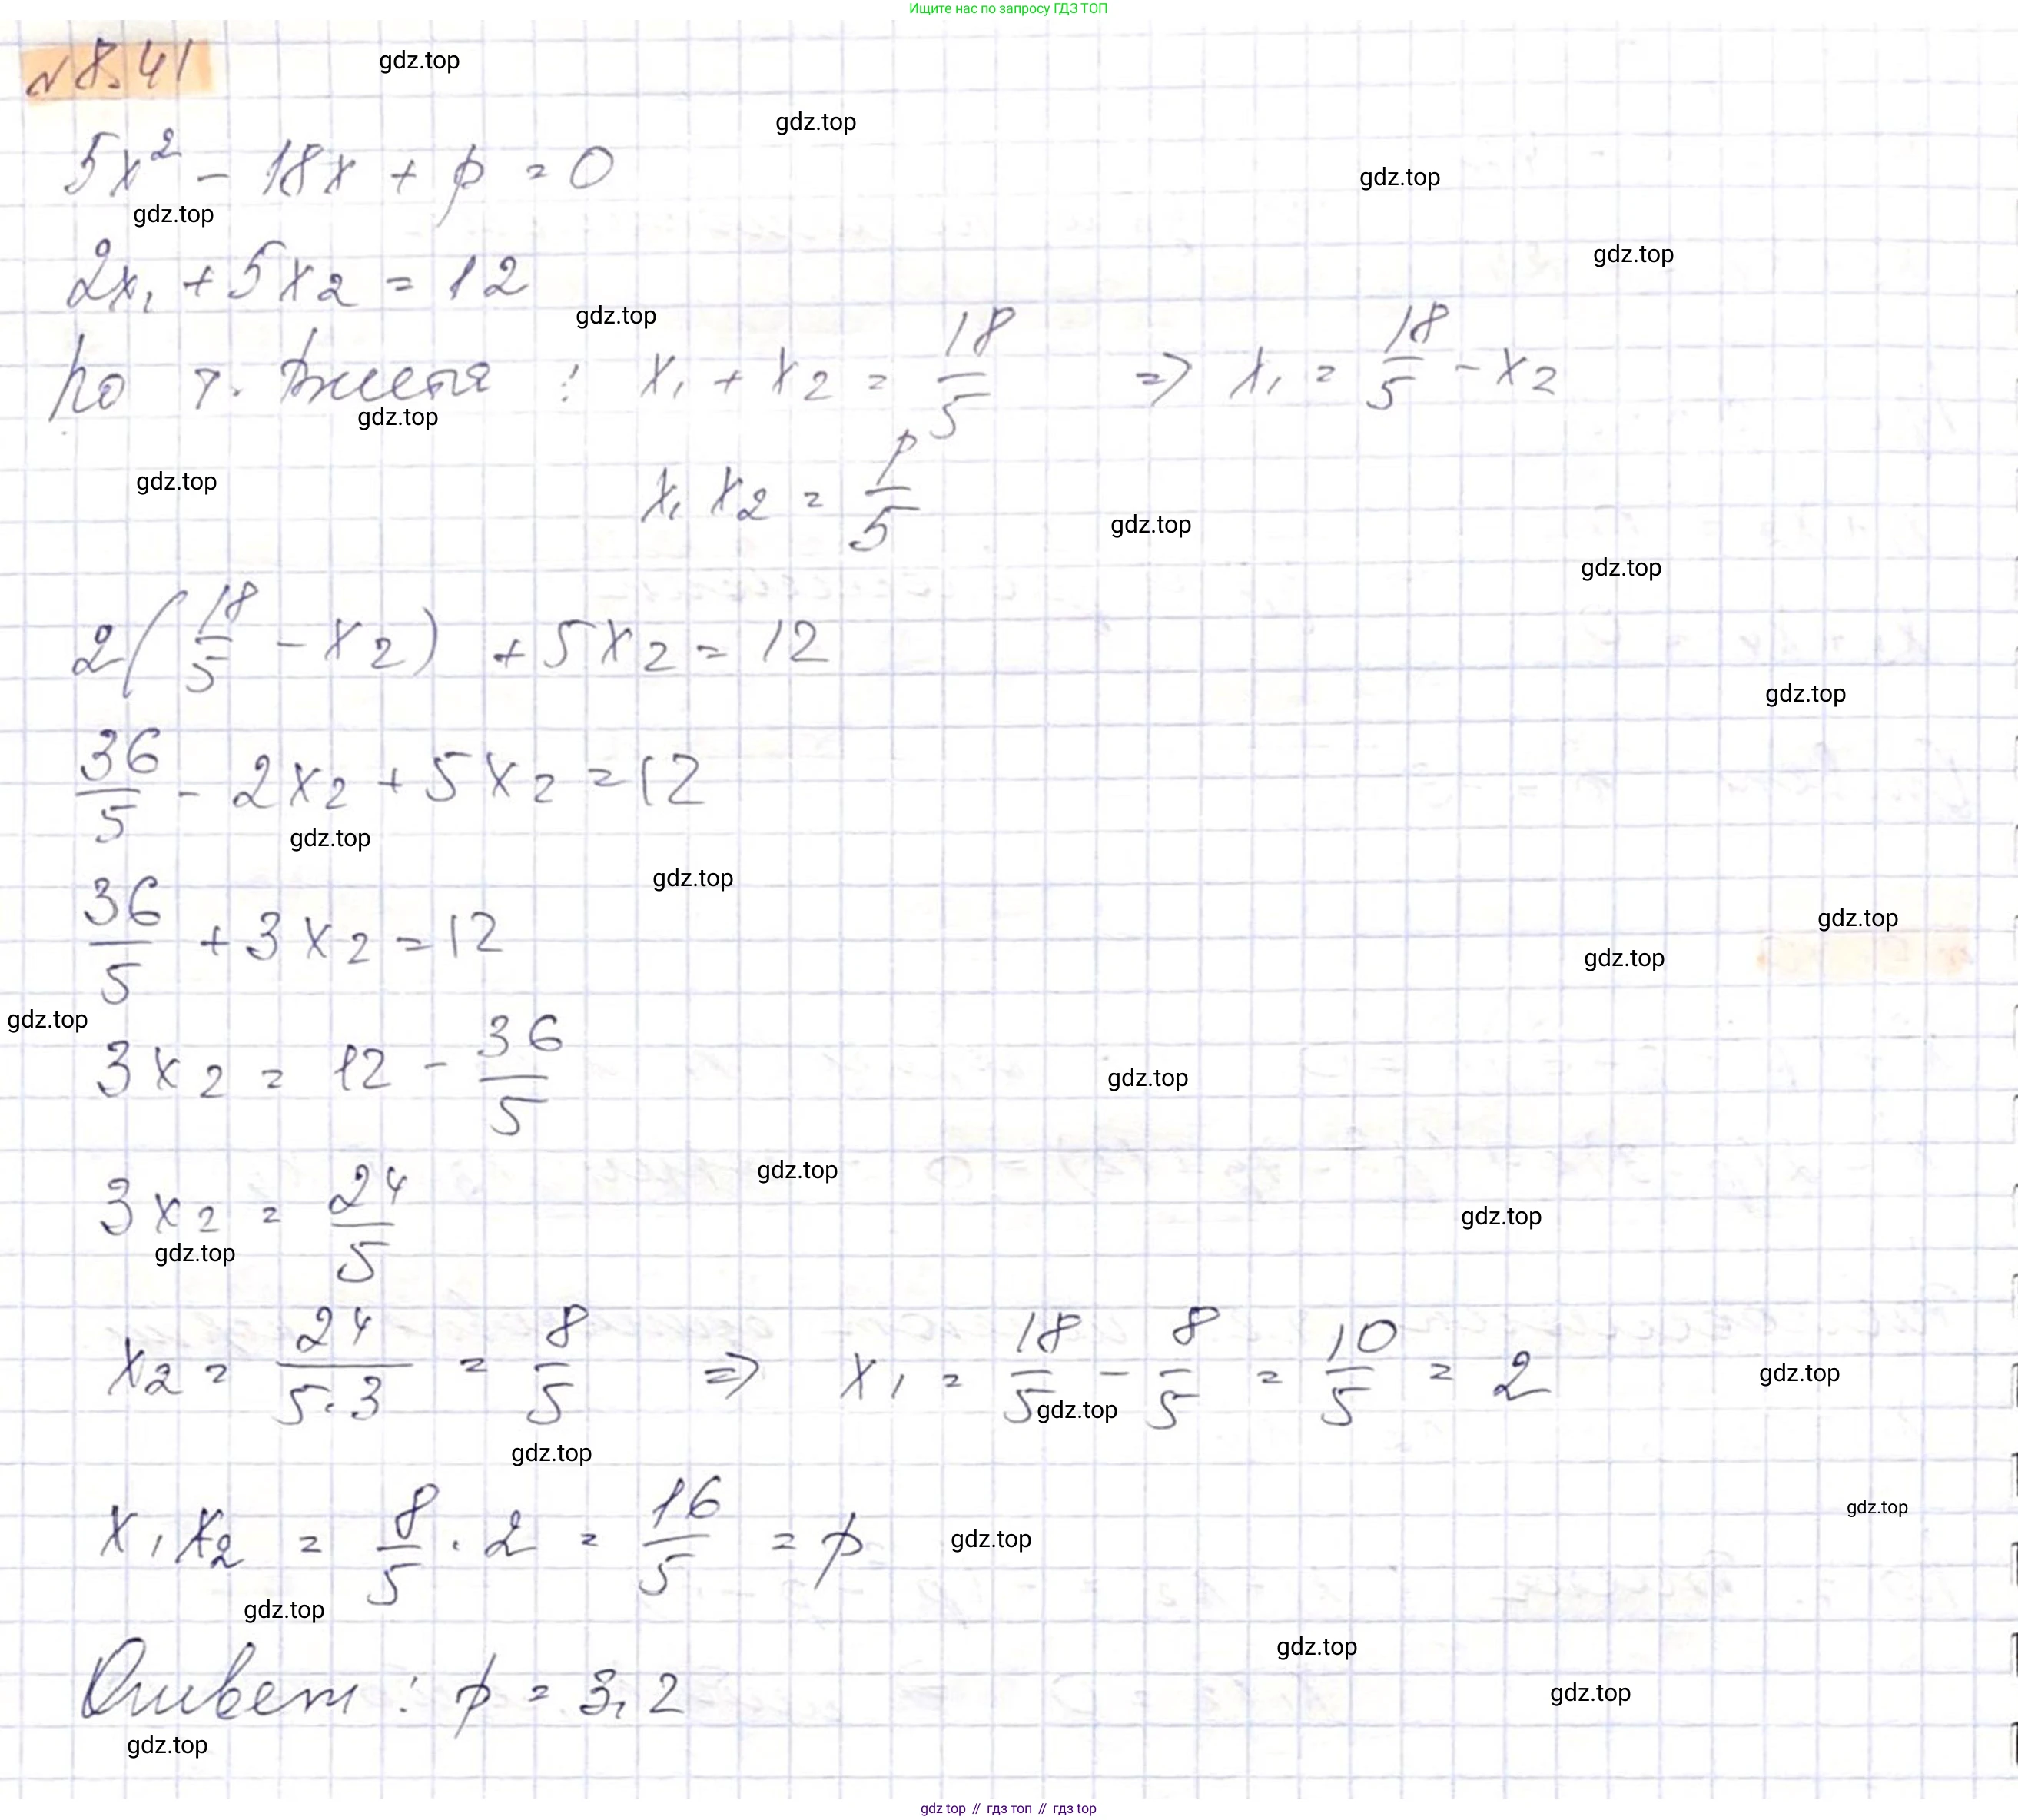 Ищите нас по запросу ГДЗ ТОП
№8.41
gdz.top
gdz.top
5x² - 18x + p = 0
gdz.top
gdz.top
gdz.top
2x₁ + 5x₂ = 12
gdz.top
По т. Виета : x₁ + x₂ = 18/5 => x₁ = 18/5 - x₂
gdz.top
gdz.top
x₁ x₂ = p/5
gdz.top
gdz.top
2(18/5 - x₂) + 5x₂ = 12
gdz.top
36/5 - 2x₂ + 5x₂ = 12
gdz.top
gdz.top
36/5 + 3x₂ = 12
gdz.top
gdz.top
gdz.top
3x₂ = 12 - 36/5
gdz.top
gdz.top
3x₂ = 24/5
gdz.top
gdz.top
x₂ = 24/5·3 = 8/5 => x₁ = 18/5 - 8/5 = 10/5 = 2
gdz.top
gdz.top
gdz.top
gdz.top
x₁x₂ = 8/5 · 2 = 16/5 = p
gdz.top
gdz.top
gdz.top
Ответ : p = 3,2
gdz.top
gdz.top
gdz top // гдз топ // гдз top